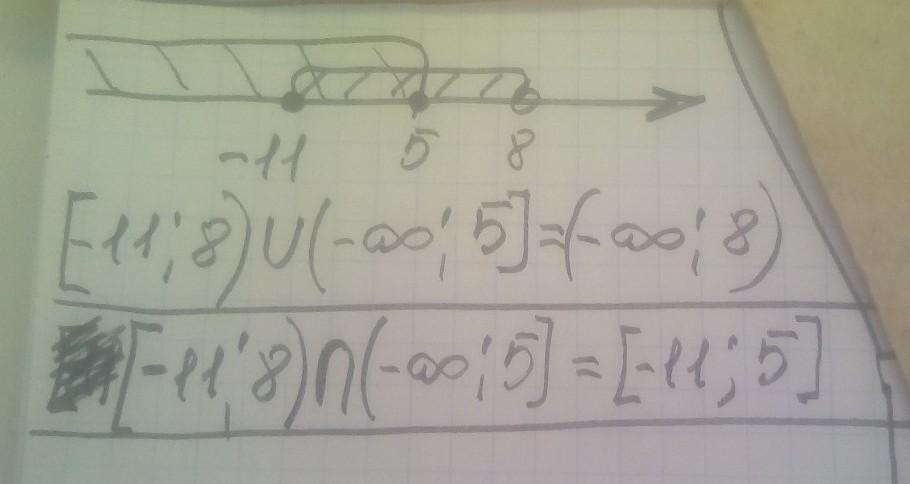 -11 5 8
[-11; 8) ∪ (-∞; 5] = (-∞; 8)
[-11; 8) ∩ (-∞; 5] = [-11; 5]